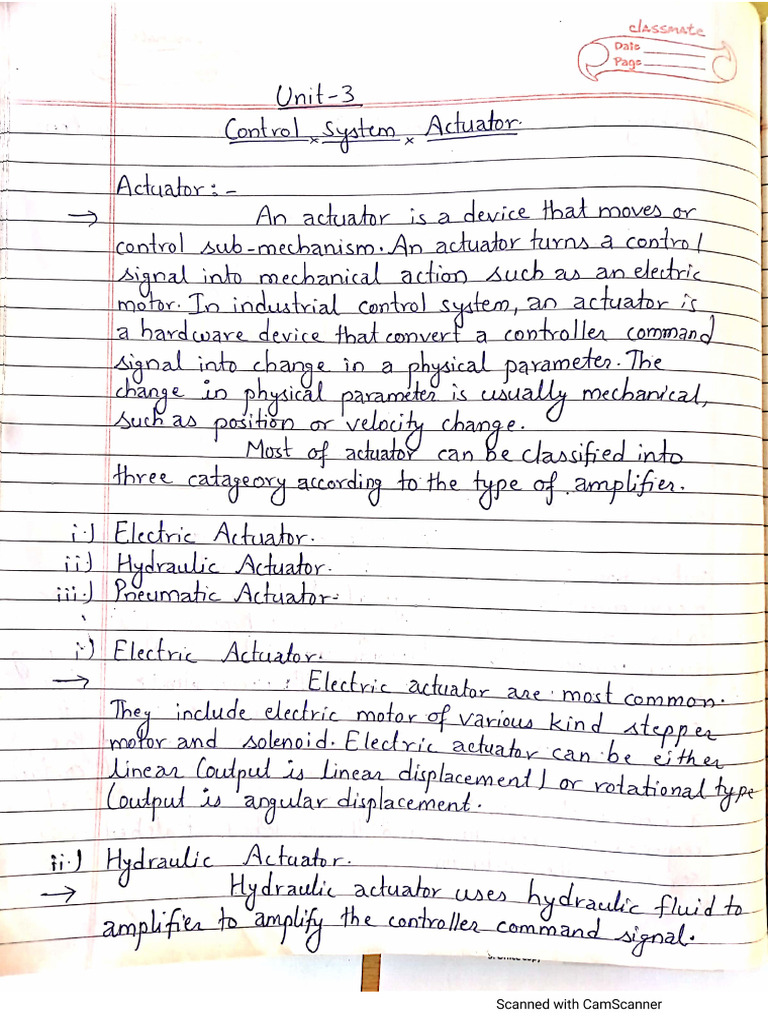 classmate
Date
Page
Unit-3
Control System Actuator.
Actuator:-
→ An actuator is a device that moves or
control sub-mechanism. An actuator turns a control
signal into mechanical action such as an electric
motor. In industrial control system, an actuator is
a hardware device that convert a controller command
signal into change in a physical parameter. The
change in physical parameter is usually mechanical,
such as position or velocity change.
Most of actuator can be classified into
three catageory according to the type of amplifier.
i.) Electric Actuator.
ii.) Hydraulic Actuator.
iii.) Pneumatic Actuator.
i.) Electric Actuator.
→ Electric actuator are most common.
They include electric motor of various kind stepper
motor and solenoid. Electric actuator can be either
linear (output is linear displacement) or rotational type
(output is angular displacement.
ii.) Hydraulic Actuator.
→ Hydraulic actuator uses hydraulic fluid to
amplifier to amplify the controller command signal.
Scanned with CamScanner